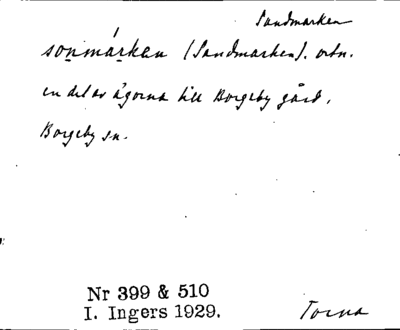 Sandmarken
sonmárkan (Sandmarken). ortn.
en del av ägorna till Borgeby gård,
Borgeby sn.
Nr 399 & 510
I. Ingers 1929.
Torna